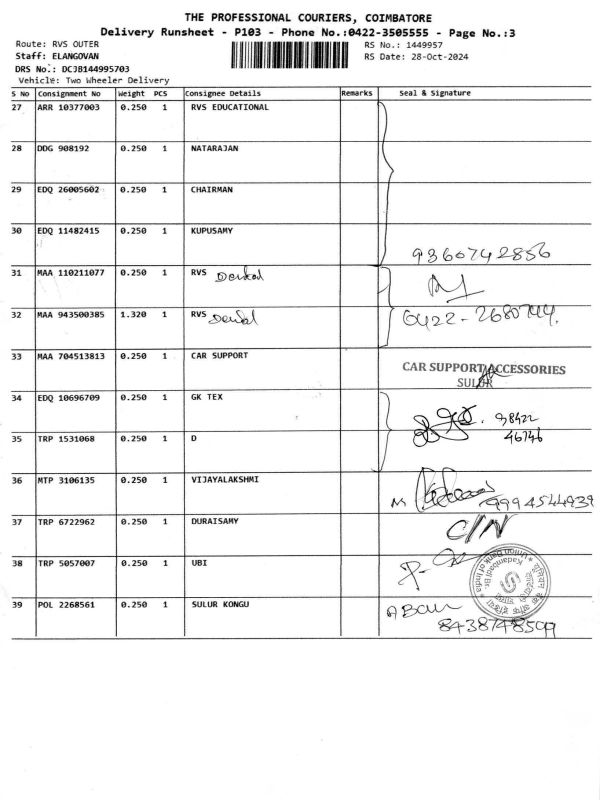 THE PROFESSIONAL COURIERS, COIMBATORE
Delivery Runsheet - P103 - Phone No.:0422-3505555 - Page No.:3
Route: RVS OUTER RS No.: 1449957
Staff: ELANGOVAN RS Date: 28-Oct-2024
DRS No.: DCJB144995703
Vehicle: Two Wheeler Delivery
S No Consignment No Weight PCS Consignee Details Remarks Seal & Signature
27 ARR 10377003 0.250 1 RVS EDUCATIONAL
28 DDG 908192 0.250 1 NATARAJAN
29 EDQ 26005602 0.250 1 CHAIRMAN
30 EDQ 11482415 0.250 1 KUPUSAMY
9360742856
31 MAA 110211077 0.250 1 RVS Dental
32 MAA 943500385 1.320 1 RVS Dental 0422-2680744.
33 MAA 704513813 0.250 1 CAR SUPPORT
CAR SUPPORT ACCESSORIES
SULUR
34 EDQ 10696709 0.250 1 GK TEX
98422
35 TRP 1531068 0.250 1 D 46746
36 MTP 3106135 0.250 1 VIJAYALAKSHMI
9994544939
37 TRP 6722962 0.250 1 DURAISAMY C/N
38 TRP 5057007 0.250 1 UBI
Union Bank of India
Kadampadi Br.
39 POL 2268561 0.250 1 SULUR KONGU
8438748599